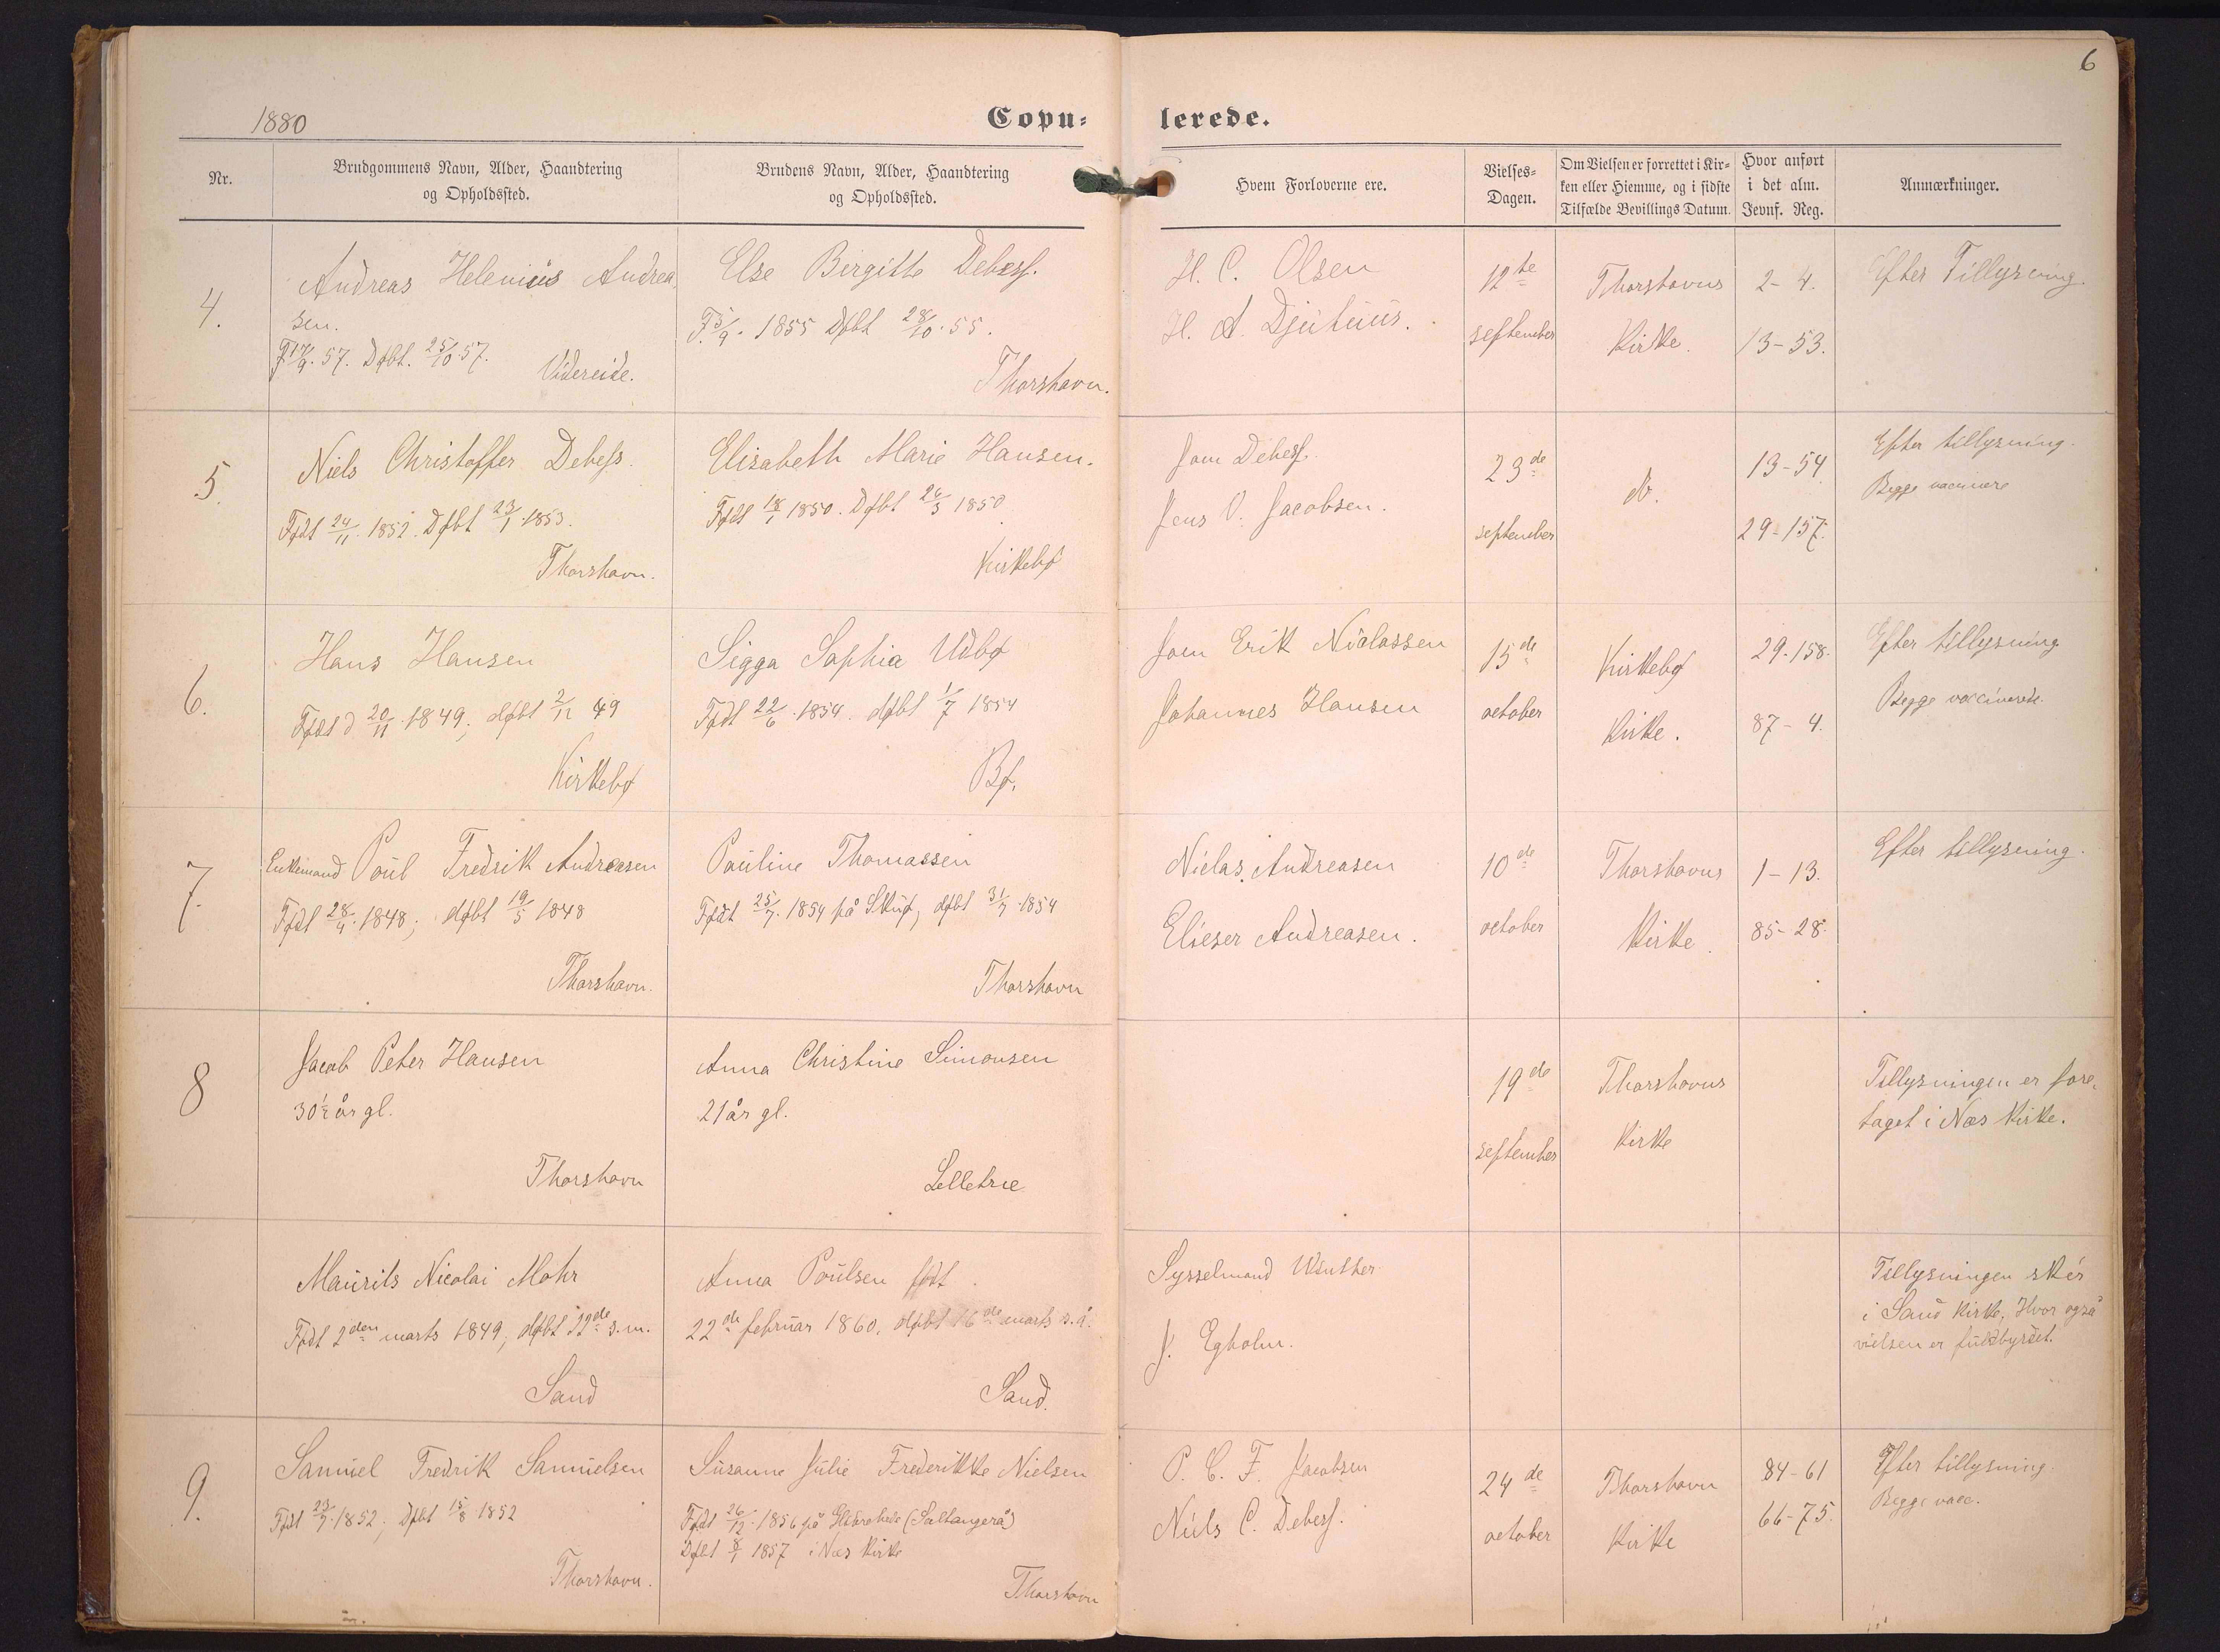 6
1880
Copu-
lerede.
Nr.
Brudgommens Navn, Alder, Haandtering
og Opholdssted.
Brudens Navn, Alder, Haandtering
og Opholdssted.
Hvem Forloverne ere.
Vielses-
Dagen.
Om Vielsen er forrettet i Kir-
ken eller Hiemme, og i sidste
Tilfælde Bevillings Datum.
Hvor anført
i det alm.
Jevnf. Reg.
Anmærkninger.
4.
Andreas Helenius Andrea
sen.
F 17/9. 57. Døbt. 25/10 57.
Videreide.
Else Birgitte Debess.
F. 5/9. 1855 Døbt 28/10. 55.
Thorshavn.
H. C. Olsen
H. A. Djuhuus.
12te
september
Thorshavns
Kirke.
2-4.
13-53.
Efter Tillysening.
5.
Niels Christoffer Debess.
Født 24/11. 1852. Døbt 23/1. 1853.
Thorshavn.
Elisabeth Marie Hansen.
Født 18/1 1850. Døbt 26/3 1850
Kirkebø
Joen Debess.
Jens O. Jacobsen.
23de
september
do.
13-54
29-157.
Efter tillysning.
Begge
6.
Hans Hansen
Født d 20/11. 1849; døbt 2/12 49
Kirkebø
Sigga Sophia Udbø
Født 22/6. 1854. døbt 1/7 1854
Bø.
Joen Erik Niclassen
Johannes Hansen
15de
october
Kirkebø
Kirke.
29.158.
87-4.
Efter tillysning
Begge vaccinerede.
7.
Enkemand Poul Fredrik Andreasen
Født 28/4. 1848; døbt 19/5 1848
Thorshavn.
Pauline Thomassen
Født 25/7. 1854 på Skuø, døbt 31/7. 1854
Thorshavn
Niclas Andreasen
Elieser Andreasen.
10de
october
Thorshavns
Kirke.
1-13.
85-28.
Efter tillysening.
8
Jacob Peter Hansen
30½ år gl.
Thorshavn
Anna Christine Simonsen
21 år gl.
Selletræ
19de
september
Thorshavns
Kirke
Tillysningen er fore-
taget i Næs Kirke.
Maurits Nicolai Mohr
Født 2den marts 1849, døbt 12de s.m.
Sand
Anna Poulsen født
22de februar 1860, døbt 16de marts s.å.
Sand.
Sysselmand Winther
J. Egholm.
Tillysningen sker
i Sand Kirke, Hvor også
vielsen er fuldbyrdet.
9.
Samuel Fredrik Samuelsen
Født 23/7. 1852; Døbt 15/8 1852
Thorshavn.
Susanne Julie Frederikke Nielsen
Født 26/12. 1856 på (Saltangerå)
Døbt 8/1 1857 i Næs Kirke
Thorshavn
P. C. F. Jacobsen
Niels C. Debess.
24de
october
Thorshavn
Kirke
84-61
66-75.
Efter tillysning.
Begge vacc.